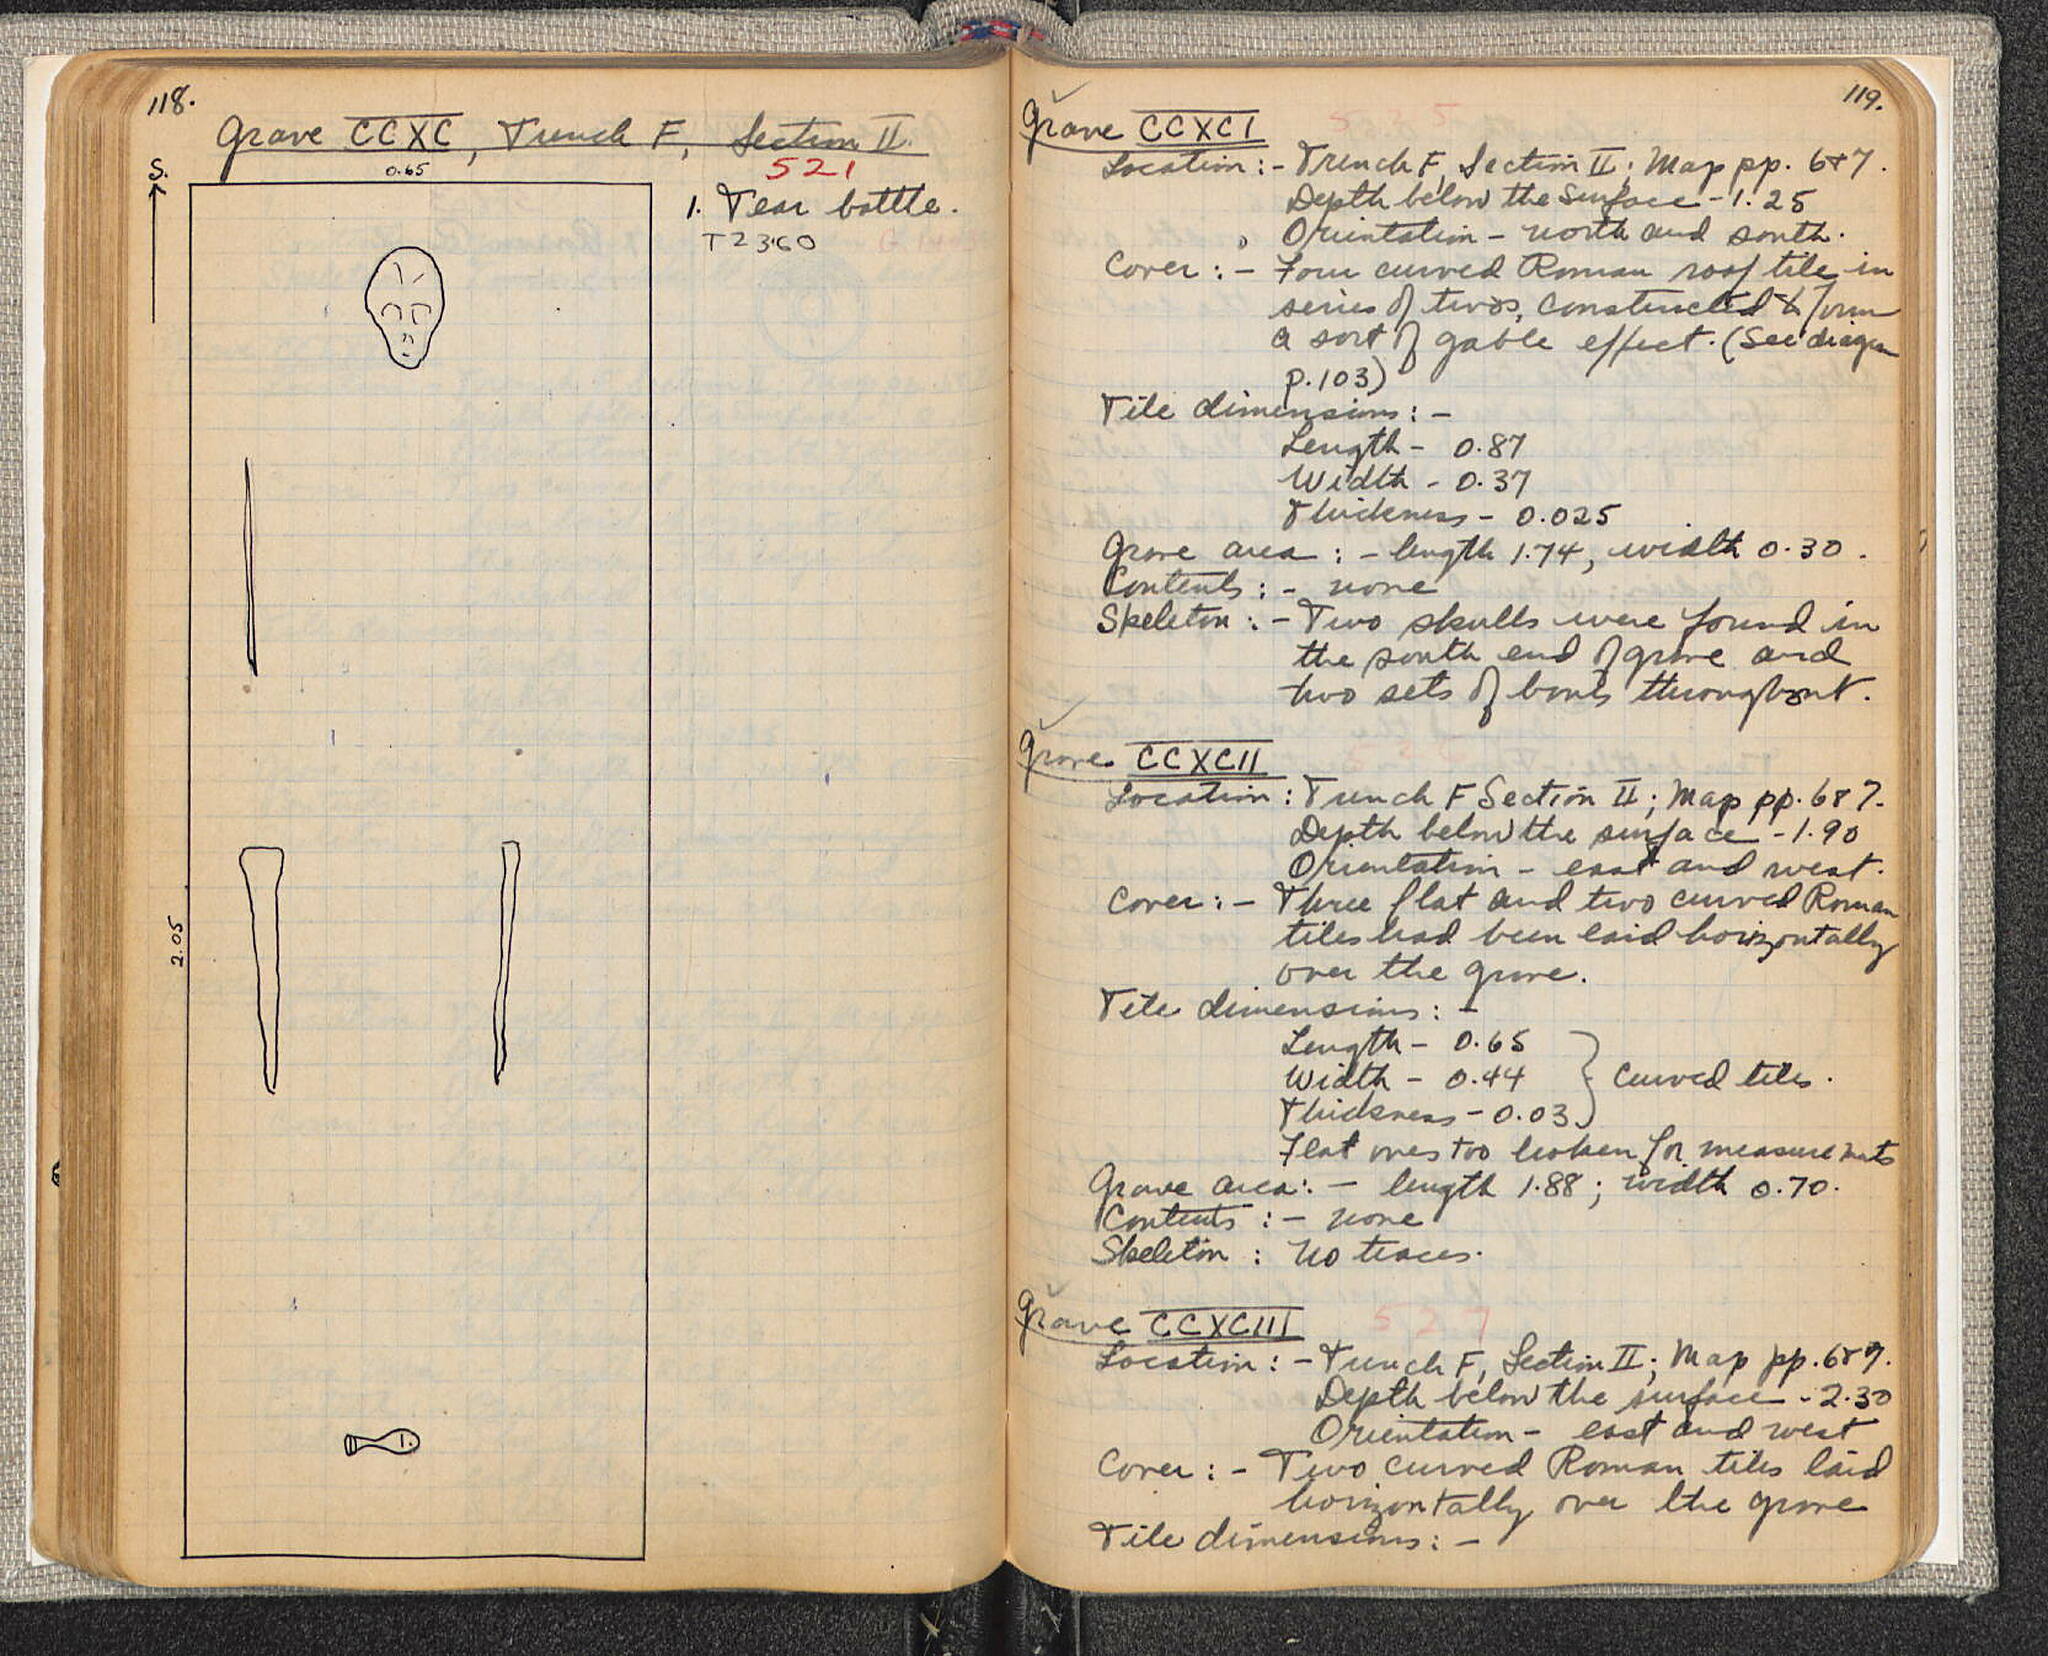 118.
Grave CCXC, Trench F, Section II.
521
S.
0.65
1. Tear bottle.
T2360
2.05
1.
119.
Grave CCXCI
525
Location:- Trench F, Section II; Map pp. 6&7.
Depth below the surface - 1.25
Orientation - north and south.
Cover:- Four curved Roman roof tile in
series of twos, constructed to form
a sort of gable effect. (See diagram
p.103)
Tile dimensions:-
Length - 0.87
Width - 0.37
Thickness - 0.025
Grave area:- length 1.74, width 0.30.
Contents:- none
Skeleton:- Two skulls were found in
the south end of grave and
two sets of bones throughout.
Grave CCXCII
Location: Trench F Section II; Map pp. 6&7.
Depth below the surface - 1.90
Orientation - east and west.
Cover:- Three flat and two curved Roman
tiles had been laid horizontally
over the grave.
Tile dimensions:-
Length - 0.65
Width - 0.44 } curved tiles.
Thickness - 0.03
Flat ones too broken for measurements
Grave area:- length 1.88; width 0.70.
Contents:- none
Skeleton: No traces.
Grave CCXCIII
527
Location:- Trench F, Section II; Map pp. 6&7.
Depth below the surface - 2.30
Orientation - east and west
Cover:- Two curved Roman tiles laid
horizontally over the grave
Tile dimensions:-